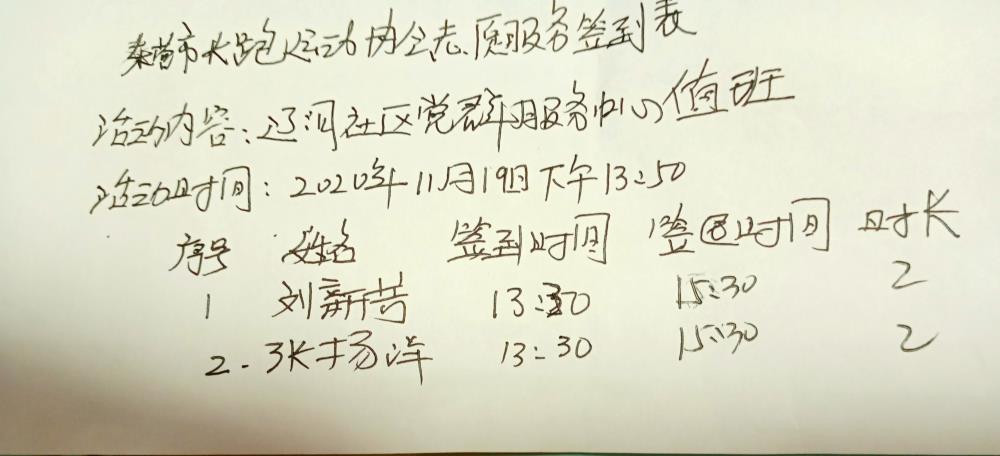 秦皇市长跑运动协会志愿服务签到表
活动内容：辽河社区党群服务中心值班
活动时间：2020年11月19日下午13:50
序号 姓名 签到时间 签退时间 时长
1 刘新苦 13:30 15:30 2
2. 张扬洋 13:30 15:30 2